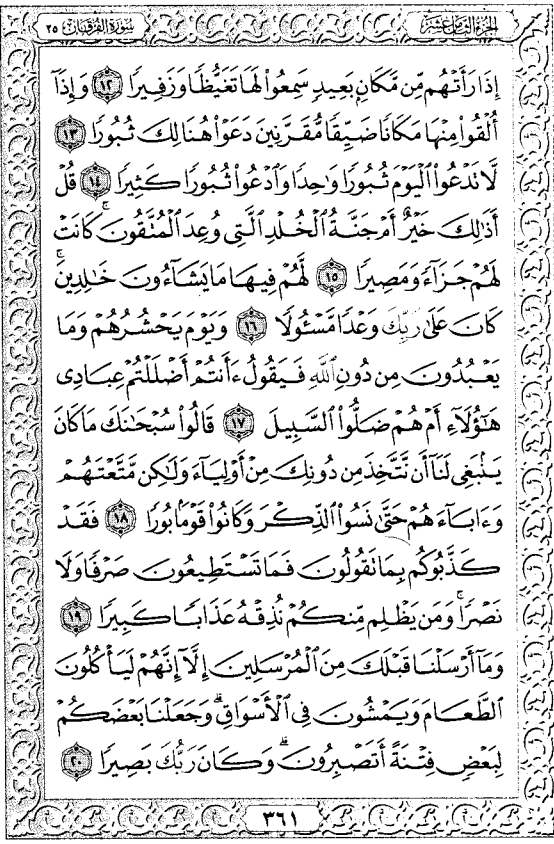 الجزء الثامن عشر
سورة الفرقان ٢٥
إِذَا رَأَتْهُم مِّن مَّكَانٍ بَعِيدٍ سَمِعُوا۟ لَهَا تَغَيُّظًا وَزَفِيرًا ١٢ وَإِذَآ
أُلْقُوا۟ مِنْهَا مَكَانًا ضَيِّقًا مُّقَرَّنِينَ دَعَوْا۟ هُنَالِكَ ثُبُورًا ١٣
لَّا تَدْعُوا۟ ٱلْيَوْمَ ثُبُورًا وَٰحِدًا وَٱدْعُوا۟ ثُبُورًا كَثِيرًا ١٤ قُلْ
أَذَٰلِكَ خَيْرٌ أَمْ جَنَّةُ ٱلْخُلْدِ ٱلَّتِى وُعِدَ ٱلْمُتَّقُونَ ۚ كَانَتْ
لَهُمْ جَزَآءً وَمَصِيرًا ١٥ لَّهُمْ فِيهَا مَا يَشَآءُونَ خَٰلِدِينَ ۚ
كَانَ عَلَىٰ رَبِّكَ وَعْدًا مَّسْـُٔولًا ١٦ وَيَوْمَ يَحْشُرُهُمْ وَمَا
يَعْبُدُونَ مِن دُونِ ٱللَّهِ فَيَقُولُ ءَأَنتُمْ أَضْلَلْتُمْ عِبَادِى
هَٰٓؤُلَآءِ أَمْ هُمْ ضَلُّوا۟ ٱلسَّبِيلَ ١٧ قَالُوا۟ سُبْحَٰنَكَ مَا كَانَ
يَنۢبَغِى لَنَآ أَن نَّتَّخِذَ مِن دُونِكَ مِنْ أَوْلِيَآءَ وَلَٰكِن مَّتَّعْتَهُمْ
وَءَابَآءَهُمْ حَتَّىٰ نَسُوا۟ ٱلذِّكْرَ وَكَانُوا۟ قَوْمًۢا بُورًا ١٨ فَقَدْ
كَذَّبُوكُم بِمَا تَقُولُونَ فَمَا تَسْتَطِيعُونَ صَرْفًا وَلَا
نَصْرًا ۚ وَمَن يَظْلِم مِّنكُمْ نُذِقْهُ عَذَابًا كَبِيرًا ١٩
وَمَآ أَرْسَلْنَا قَبْلَكَ مِنَ ٱلْمُرْسَلِينَ إِلَّآ إِنَّهُمْ لَيَأْكُلُونَ
ٱلطَّعَامَ وَيَمْشُونَ فِى ٱلْأَسْوَاقِ ۗ وَجَعَلْنَا بَعْضَكُمْ
لِبَعْضٍ فِتْنَةً أَتَصْبِرُونَ ۗ وَكَانَ رَبُّكَ بَصِيرًا ٢٠
٣٦١